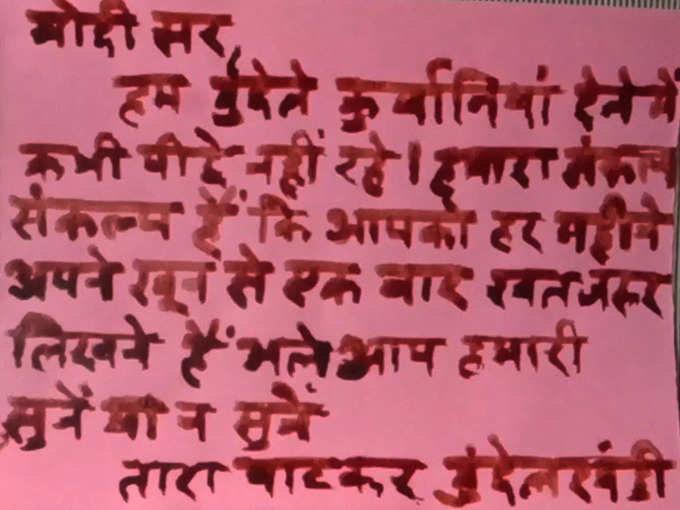 मोदी सर,
हम बुंदेले कुर्बानियां देने में
कभी पीछे नहीं रहे। हमारा संकल्प
संकल्प हैं कि आपको हर महीने
अपने खून से एक बार खत जरूर
लिखने हैं भले आप हमारी
सुनें या न सुनें
तारा पाटकर बुंदेलखंडी